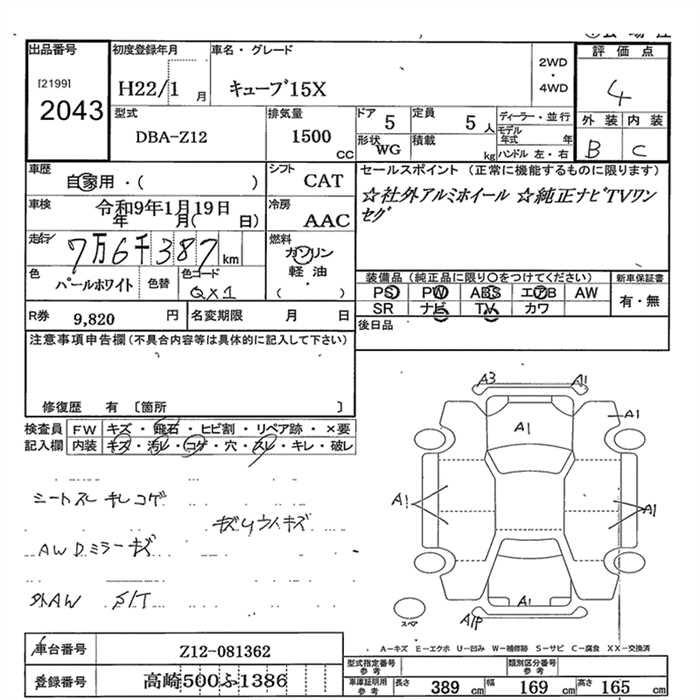 出品番号 初度登録年月 車名・グレード 評価点
[2199]
2043
H22/1月 キューブ15X 2WD・4WD 4
型式 排気量 ドア 定員 ディーラー・並行 外装 内装
DBA-Z12 1500cc 5 5人 モデル年式 年 B C
形状 WG 積載 kg ハンドル 左・右
車歴 シフト セールスポイント(正常に機能するものに限ります)
自家用・( ) CAT ☆社外アルミホイール ☆純正ナビTVワン
セグ
車検 令和9年1月19日 冷房 AAC
年 月( 日)
走行 7万6千387km 燃料 ガソリン
軽・油
( )
色 パールホワイト 色替 色コード QX1
装備品(純正品に限り○をつけてください) 新車保証書
PS PW ABS エアB AW 有・無
SR ナビ TV カワ
R券 9,820円 名変期限 月 日 後日品
注意事項申告欄(不具合内容等は具体的に記入して下さい)
修復歴 有 〔箇所 〕
検査員 FW キズ・飛石・ヒビ割・リペア跡・×要
記入欄 内装 キズ・汚レ・コゲ・穴・スレ・キレ・破レ
シートスレ キレ コゲ
キズUワイキズ
AWDミラーキズ
外AW S/T
A3 A1
A1 A1
A1 A1
A1
A1P
スペア
A-キズ E-エクボ U-凹み W-補修跡 S-サビ C-腐食 XX-交換済
車台番号 Z12-081362 型式指定番号 参考 類別区分番号 参考
登録番号 高崎500ふ1386 車庫証明用 参考 長さ 389cm 幅 169cm 高さ 165cm